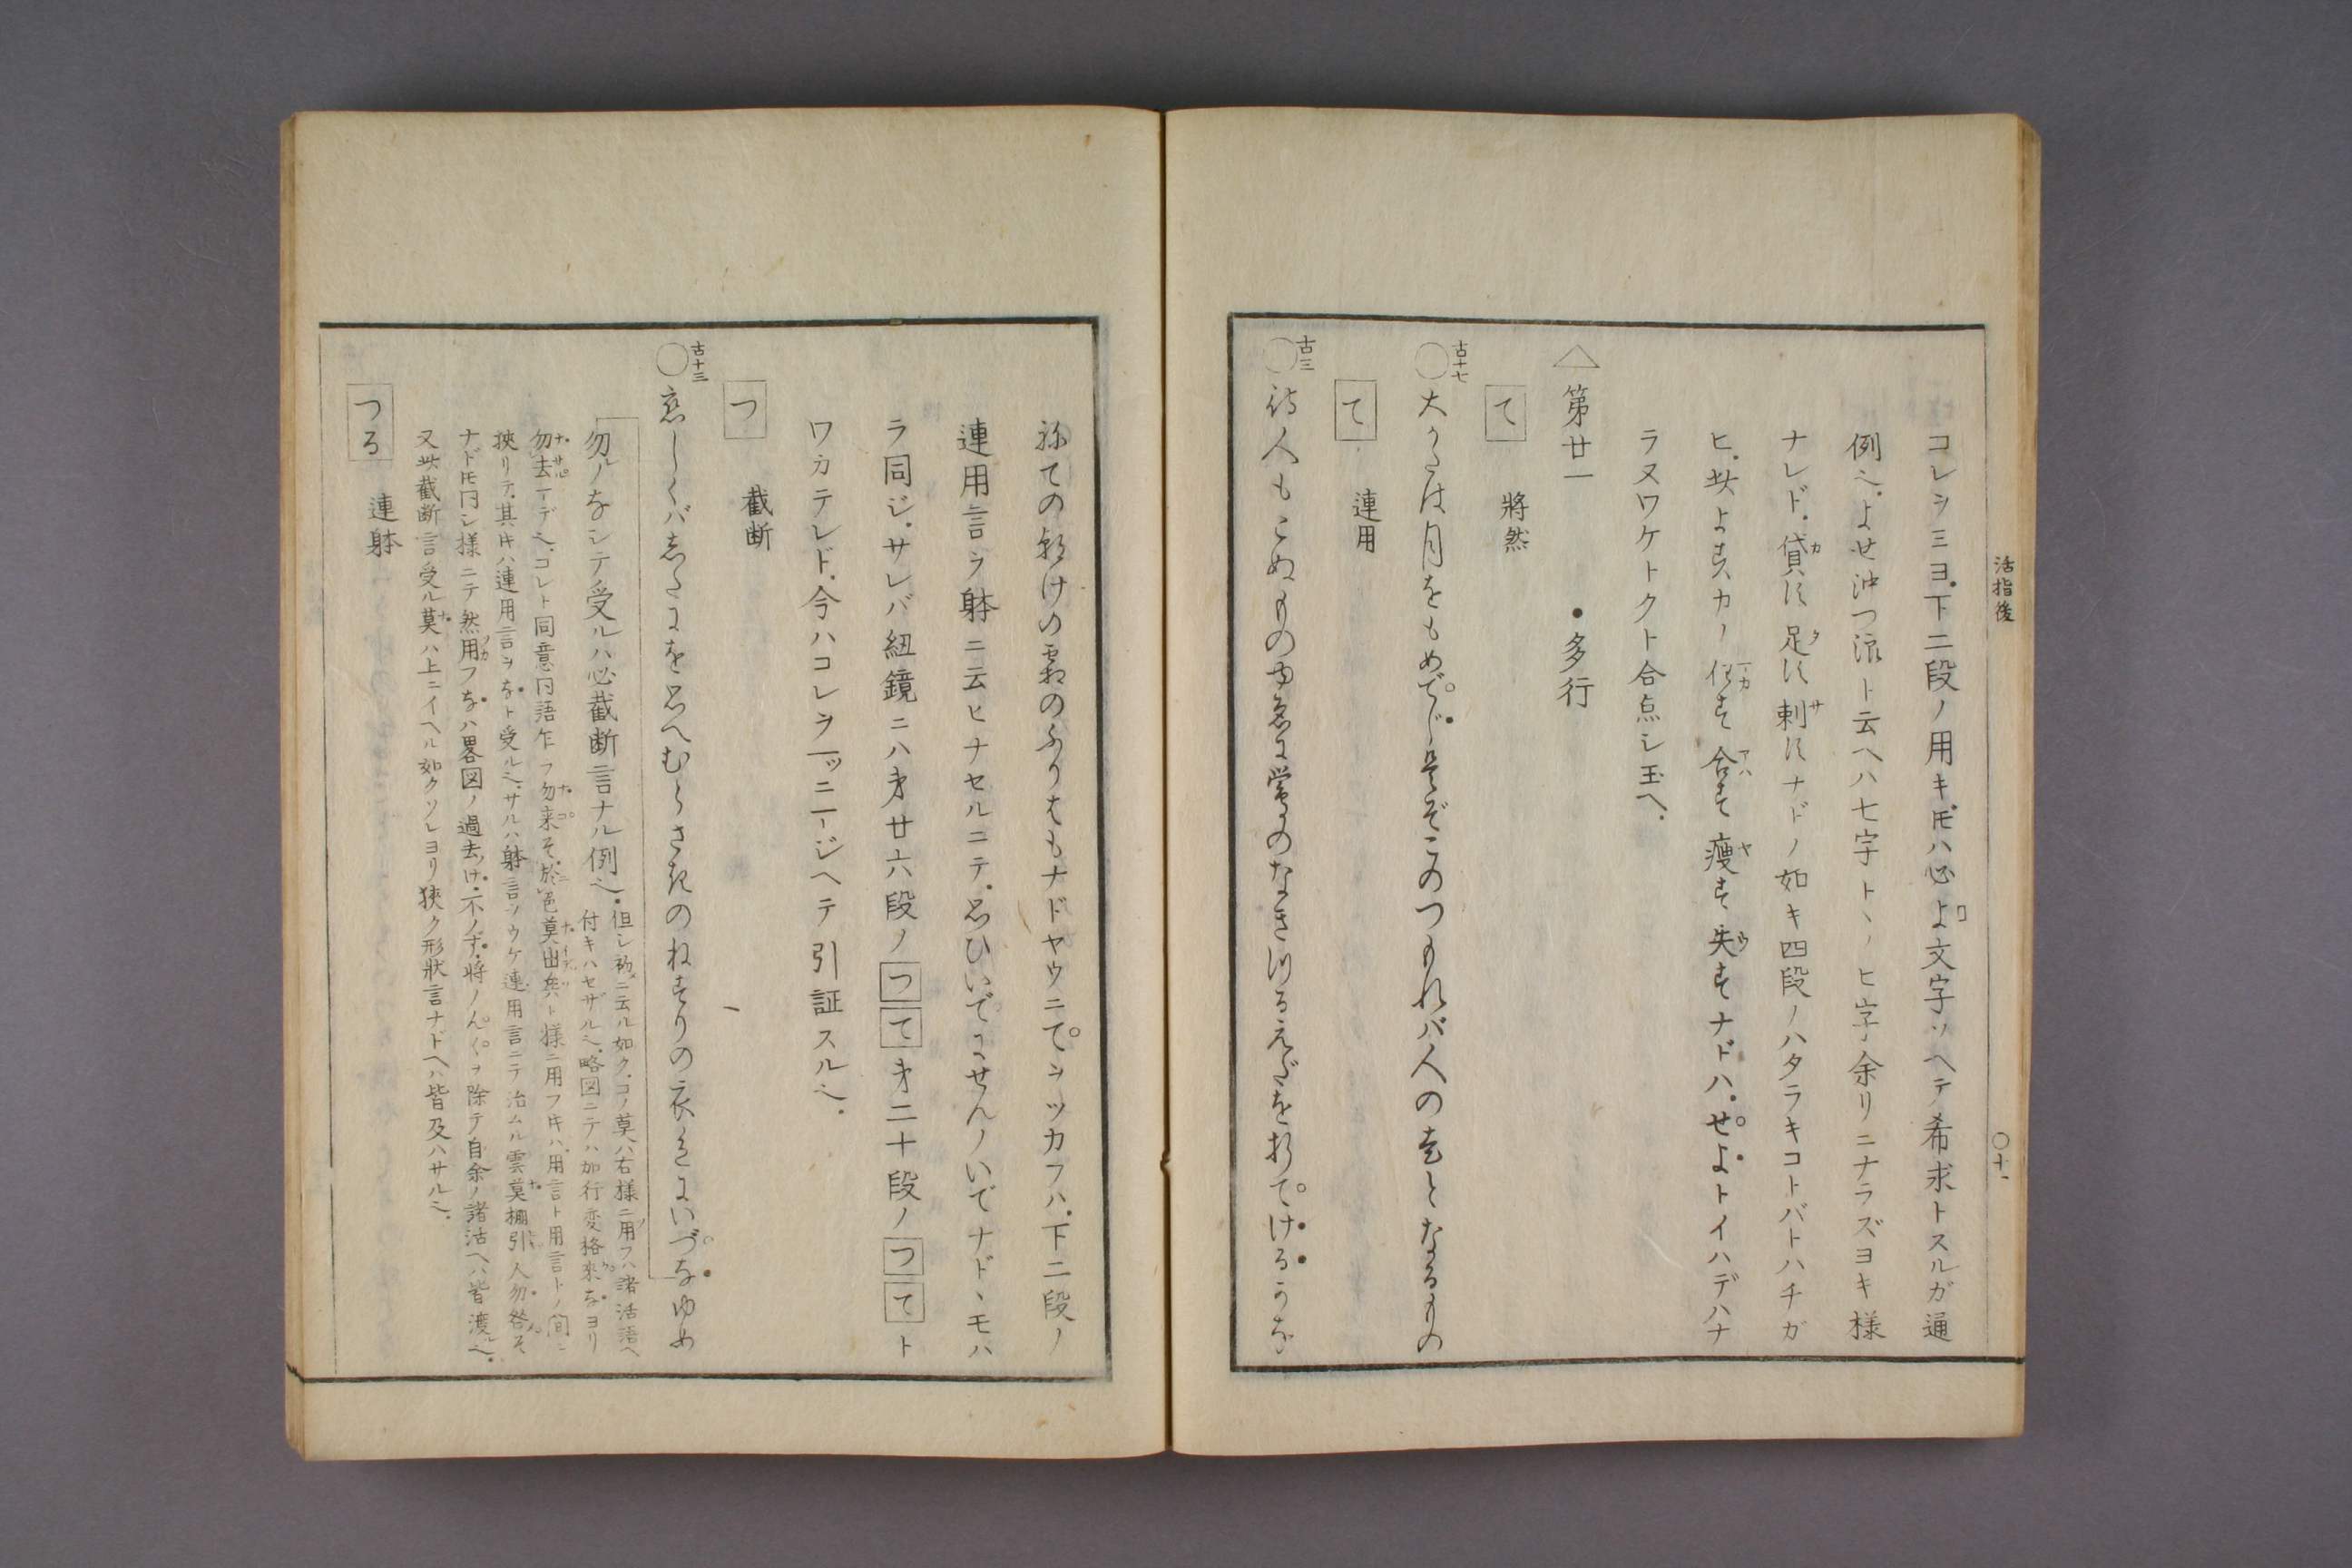 活指後
○十一
コレヲミヨ下二段ノ用キ𪜈ハ必よ文字ソヘテ希求トスルガ通
例也よせ沖つ浪ト云ヘハ七字トヽノヒ字余リニナラズヨキ様
ナレド貸せ足せ刺せナドノ如キ四段ノハタラキコトバトハチガ
ヒ此よすカノ似す合す痩す失すナドハせよトイハデハナ
ラヌワケトクト合点シ玉ヘ
△第廿一 ・多行
て 將然
古十七
○大かたは月をもめでじ是ぞこのつもれバ人の老となるもの
て 連用
古三
○待人もこぬものゆゑに鶯のなきつるえだを折てけるかな
ねての朝けの霜のふりはもナドヤウニてヲツカフハ下二段ノ
連用言ヲ躰ニ云ヒナセルニテ思ひいでにせんノいでナドヽモハ
ラ同ジサレバ紐鏡ニハ才廿六段ノつて才二十段ノつてト
ワカテレド今ハコレヲ一ツニ一ジヘテ引証スル也
つ 截断
古十三
○恋しくバしたにを思へむらさきのねずりの衣色にいづなゆめ
勿ノなシテ受ルハ必截断言ナル例也
但シ初ニ云ル如クコノ莫ハ右様ニ用フハ諸活語ヘ
付キハセザル也略図ニテハ加行変格來なヨリ
勿去ーデ也コレト同意同語乍フ勿来そ於色莫出ト様ニ用フ𪜈ハ用言ト用言トノ間ニ
狹リテ其𪜈ハ連用言ヲなト受ル也サルハ躰言ヲウケ連用言ニテ治ムル雲莫棚引人勿咎そ
ナド𪜈同シ様ニテ然用フなハ畧図ノ過去ノけ不ノず將ノんヲ除テ自余ノ諸活ヘハ皆渡ル也
又此截断言受ル莫ハ上ニイヘル如クソレヨリ狹ク形狀言ナドヘハ皆及ハサル也
つる 連躰